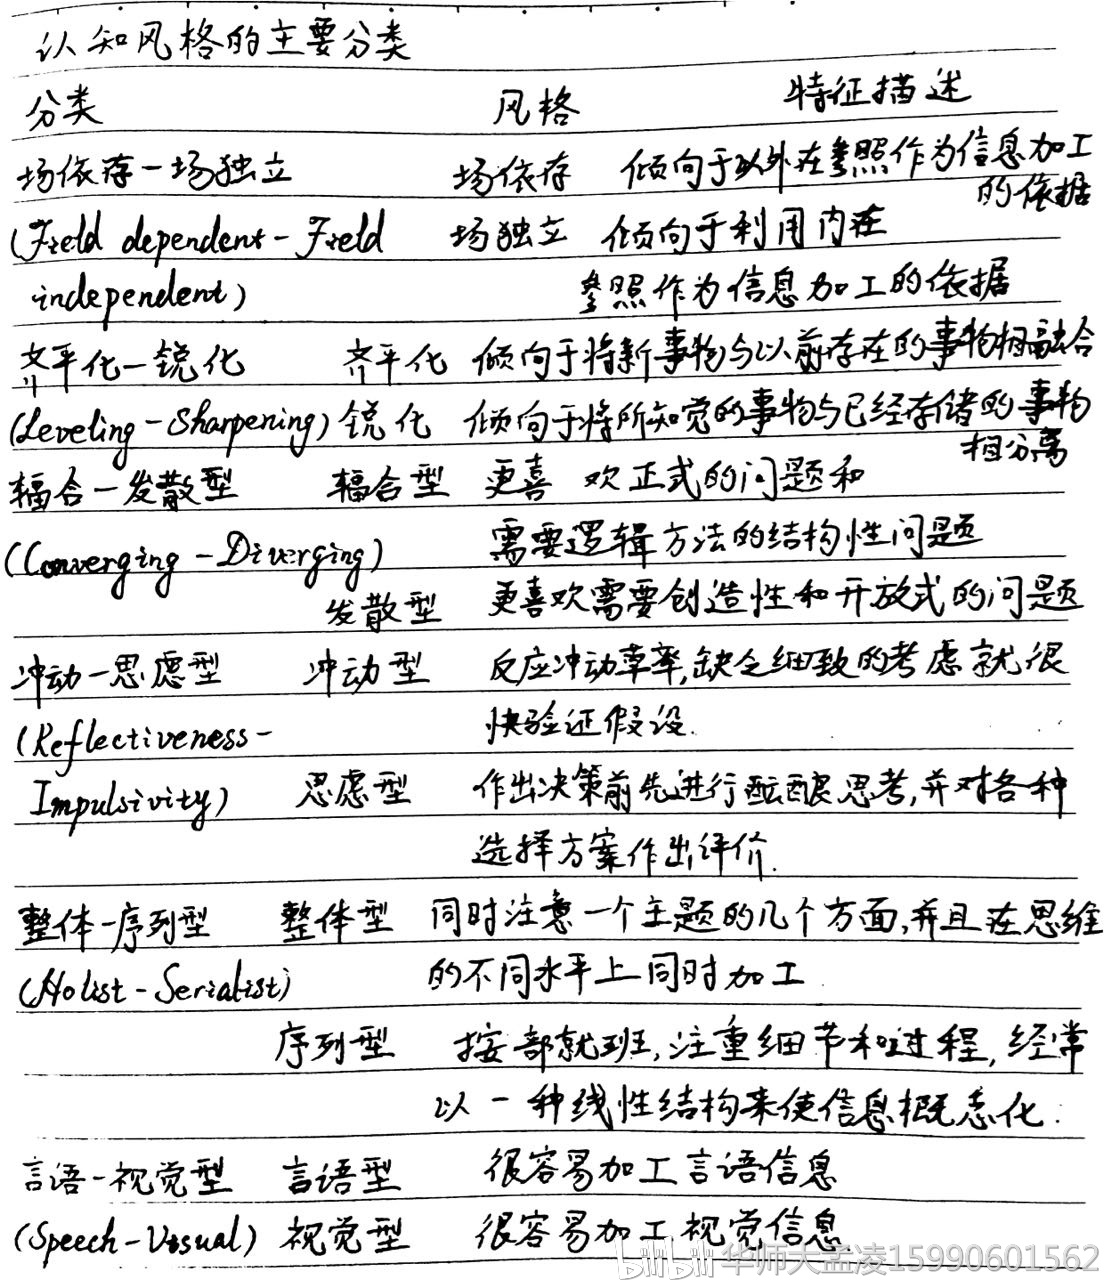 认知风格的主要分类
分类 风格 特征描述
场依存一场独立 场依存 倾向于以外在参照作为信息加工
的依据
(Field dependent-Field 场独立 倾向于利用内在
independent) 参照作为信息加工的依据
齐平化一锐化 齐平化 倾向于将新事物与以前存在的事物相融合
(Leveling-Sharpening) 锐化 倾向于将所知觉的事物与已经存储的事物
相分离
辐合一发散型 辐合型 更喜欢正式的问题和
(Converging-Diverging) 需要逻辑方法的结构性问题
发散型 更喜欢需要创造性和开放式的问题
冲动一思虑型 冲动型 反应冲动草率,缺乏细致的考虑就很
(Reflectiveness- 快验证假设.
Impulsivity) 思虑型 作出决策前先进行酝酿思考,并对各种
选择方案作出评价.
整体一序列型 整体型 同时注意一个主题的几个方面,并且在思维
(Holist-Serialist) 的不同水平上同时加工
序列型 按部就班,注重细节和过程,经常
以一种线性结构来使信息概念化.
言语-视觉型 言语型 很容易加工言语信息
(Speech-Visual) 视觉型 很容易加工视觉信息
bilibili 华师大孟凌15990601562